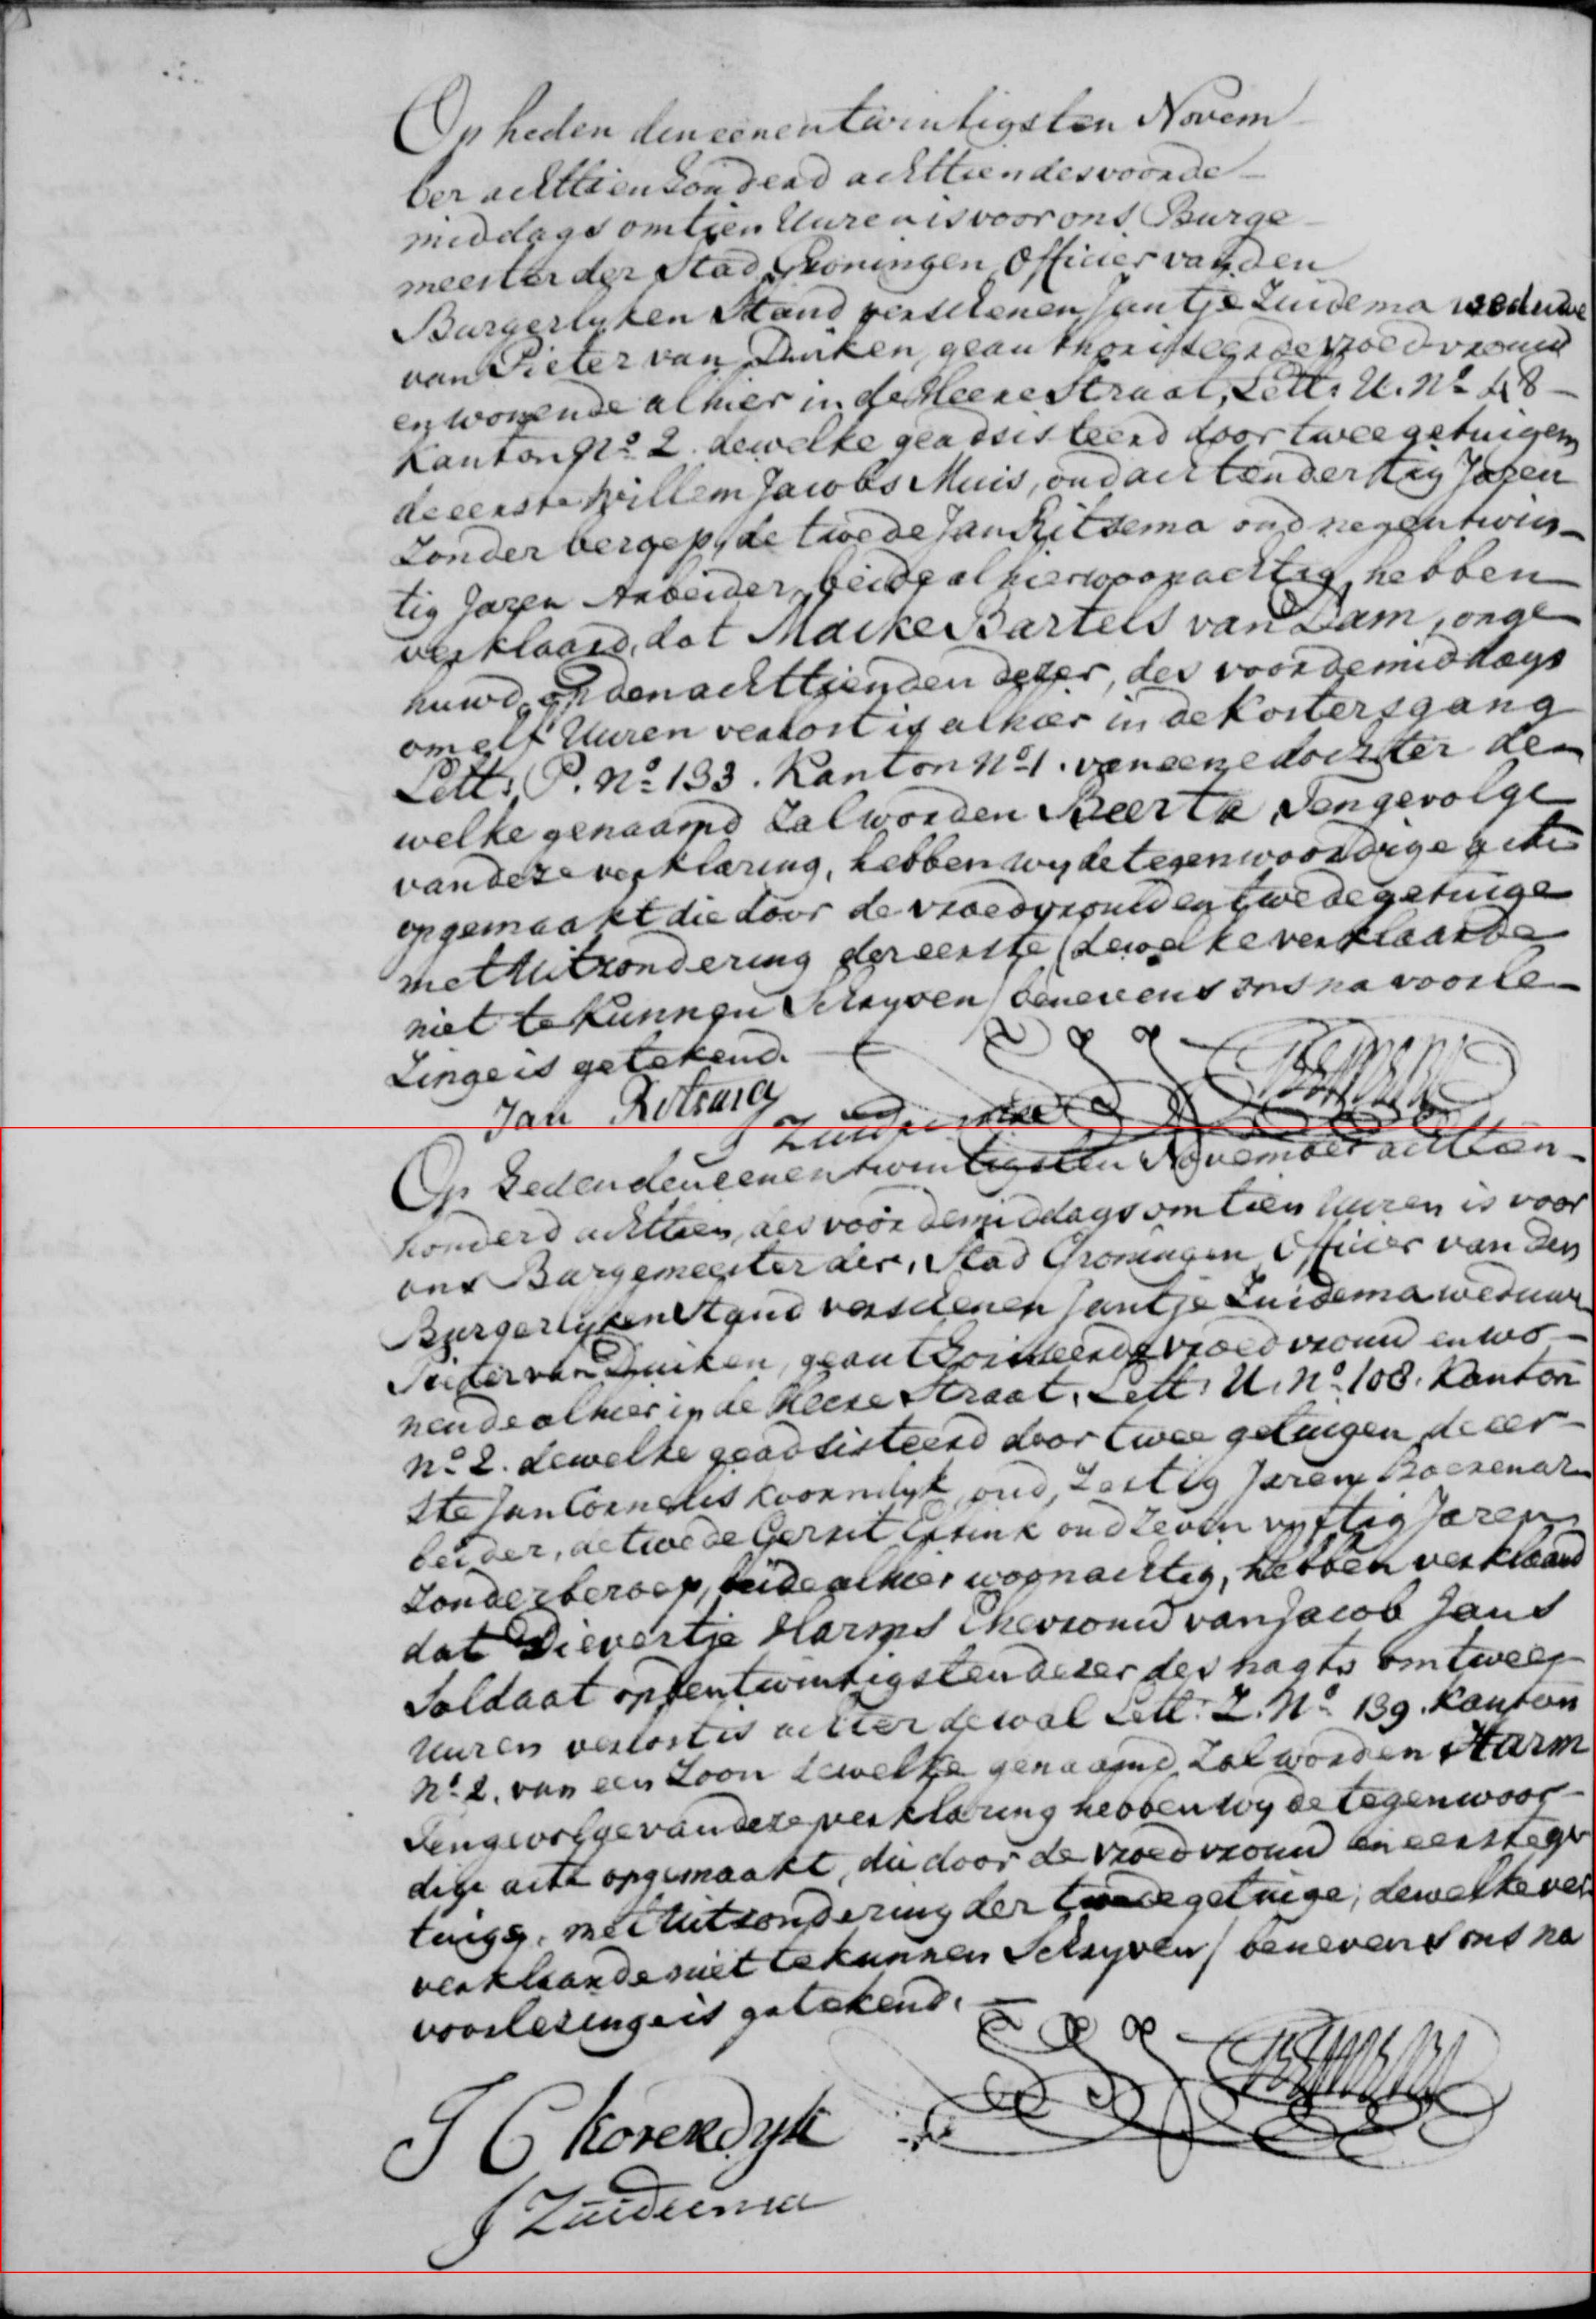 Op heden den eenentwintigsten Novem-
ber achttienhonderd achttien des voorde-
middags om tien Uuren is voor ons Burge-
meester der Stad Groningen Officier van den
Burgerlyken Stand verschenen Jantje Zuidema weduwe
van Pieter van Duiken, geauthoriseerde vroedvrouw
en wonende alhier in de Heere Straat, Lett: U. No 48-
Kanton No 2. dewelke geadsisteerd door twee getuigen
de eerste Willem Jacobs Muis, oud achtendertig Jaren
Zonder beroep, de twede Jan Ritsema oud negentwin-
tig Jaren Arbeider, beide alhier woonachtig, hebben
verklaard, dat Maike Bartels van Dam, onge
huwd, op den achttienden dezer, des voordemiddags
om elf Uuren verlost is alhier in de Kostersgang
Lett: P. No 133. Kanton No 1. van eene dochter de
welke genaamd zal worden Beerta, Tengevolge
van deze verklaring, hebben wy de tegenwoordige acte
opgemaakt die door de vroedvrouw en twede getuige
met Uitzondering der eerste (dewelke verklaarde
niet te kunnen Schryven) benevens ons na voorle-
Zinge is getekend.
Jan Ritsema
Zuidema
Op heden den eenentwintigsten November achttien-
honderd achttien, des voordemiddags om tien Uuren is voor
ons Burgemeester der Stad Groningen Officier van den
Burgerlyken Stand verschenen Jantje Zuidema weduwe
Pieter van Duiken, geauthoriseerde vroedvrouw en wo-
nende alhier in de Heere Straat, Lett: U. No 108. Kanton
No 2. dewelke geadsisteerd door twee getuigen de eer-
ste Jan Cornelis Koorndyk oud, Zestig Jaren Boerenar-
beider, de twede Gerrit Essink oud Zeven vyftig Jaren
Zonder beroep, beide alhier woonachtig, hebben verklaard
dat Dievertje Harms Ehevrouw van Jacob Jans
Soldaat op den twintigsten dezer des nagts om twee
Uuren verlost is achter de wal Lett: Z. No 139. Kanton
No 2. van een Zoon dewelke genaamd Zal worden Harm
Tengevolge van deze verklaring hebben wy de tegenwoor-
dige acte opgemaakt, die door de vroedvrouw en eerste ge-
tuige, met Uitzondering der twede getuige, dewelke ver
verklaarde niet te kunnen Schryven/ benevens ons na
voorlezinge is getekend.
J C Korendyk
J Zuidema